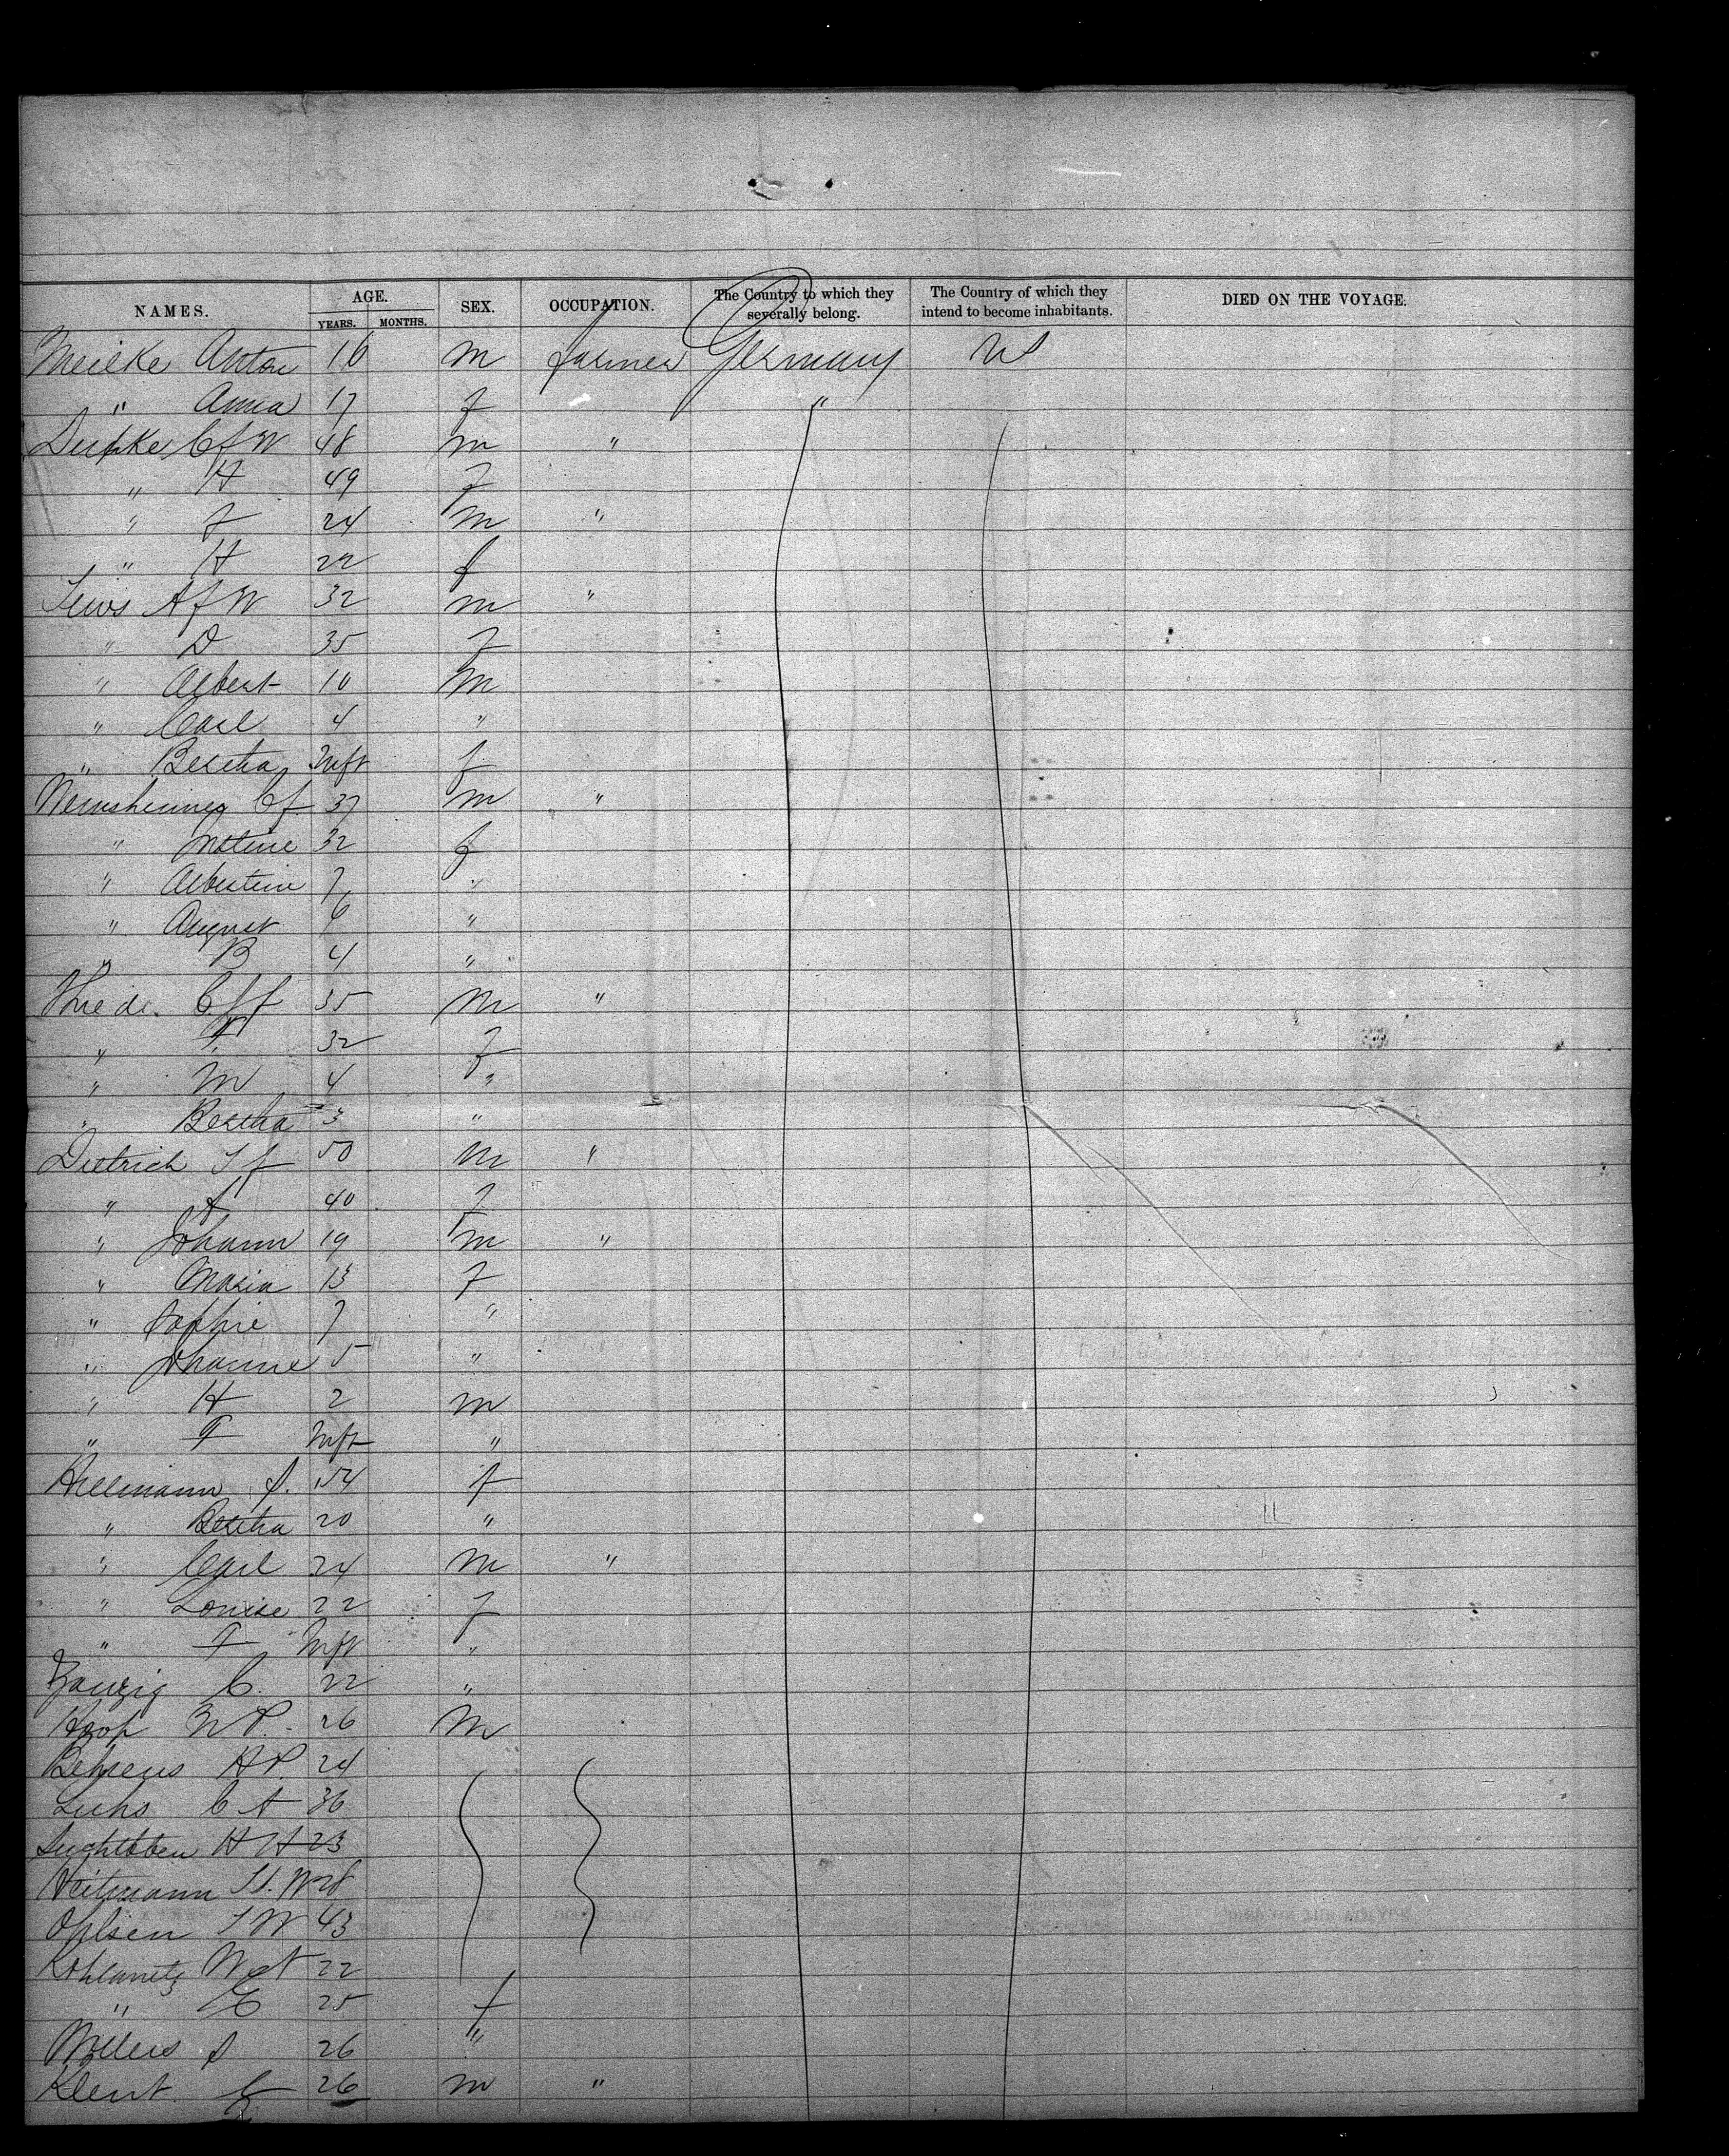 NAMES. AGE. YEARS. MONTHS. SEX. OCCUPATION. The Country to which they severally belong. The Country of which they intend to become inhabitants. DIED ON THE VOYAGE.
Meilke Anton 16 m farmer Germany US
" Anna 17 f "
Dupke C f W 48 m "
" H 49 f
" f 24 m "
" H 22 f
A f W 32 m "
" D 35 f
" Albert 10 m
" Carl 4 "
" Bertha Inft f
C f 37 m "
" 32 f
" Albertine 7 "
" August 6 "
" B 4 "
Thiede C f f 35 m "
" F. 32 f
" M 4 "
" Bertha 3 "
Dietrich J f 50 m "
" A 40 f
" Johann 19 m "
" Maria 13 f
" Sophie 7 "
" Johanne 5 "
" H 2 m
" F Inft "
Hillmann S. 54 f
" Bertha 20 "
" Carl 24 m "
" Louise 22 f
" F Inft "
C. 22 "
Koop N P. 26 m
Behrens H P. 24
Luhs C A 36
H H 23
Heitmann H. W 28
Ohlsen J W 43
W A 22
" E 25 f
Möllers S 26 "
Klent 26 m "